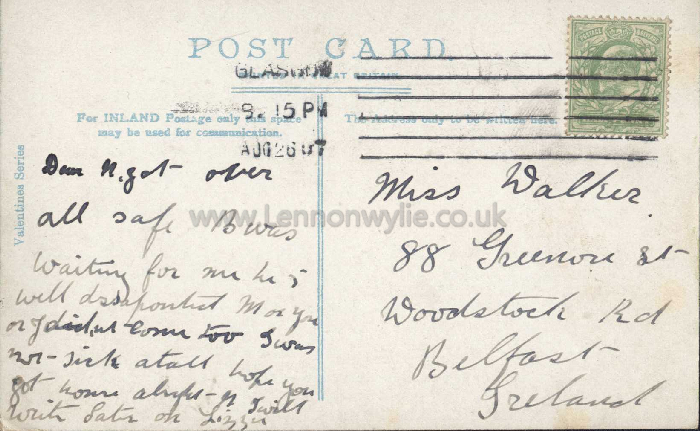 POST CARD
GLASGOW
GREAT BRITAIN
8.15 PM
AUG 26 07
For INLAND Postage only this space
may be used for communication.
The Address only to be written here.
Valentines Series
Dear N, got over
all safe B was
waiting for me he is
well disapointed M or you
or J did,nt come too I was
not sick atall hope you
got home alright I will
write Later on Lizzie
Miss Walker
88 Greenore St
Woodstock Rd
Belfast
Ireland
www.Lennonwylie.co.uk